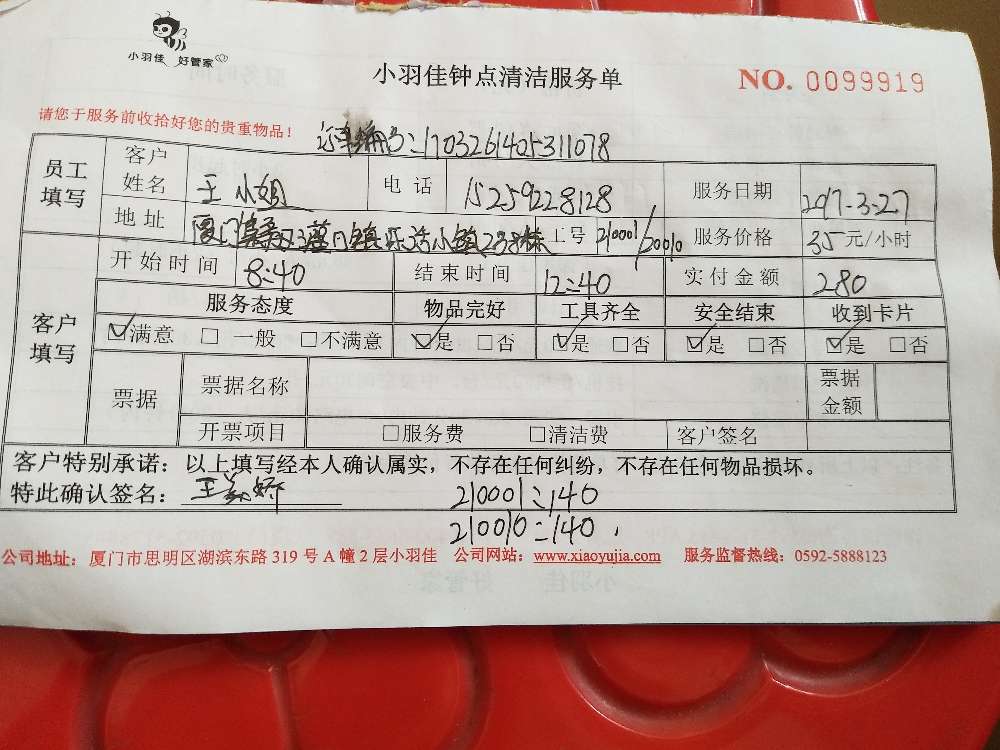 小羽佳 好管家
小羽佳钟点清洁服务单
NO. 0099919
请您于服务前收拾好您的贵重物品！
订单编号：1703261405311078
员工填写 客户姓名 王小姐 电话 15259228128 服务日期 2017-3-27
地址 厦门集美区灌口镇乐活小镇238栋 工号 210001/210010 服务价格 35元/小时
客户填写 开始时间 8:40 结束时间 12:40 实付金额 280
服务态度 物品完好 工具齐全 安全结束 收到卡片
☑满意 □一般 □不满意 ☑是 □否 ☑是 □否 ☑是 □否 ☑是 □否
票据 票据名称 票据金额
开票项目 □服务费 □清洁费 客户签名
客户特别承诺：以上填写经本人确认属实，不存在任何纠纷，不存在任何物品损坏。
特此确认签名：王 娇
210001:140
210010:140
公司地址：厦门市思明区湖滨东路319号A幢2层小羽佳 公司网站：www.xiaoyujia.com 服务监督热线：0592-5888123